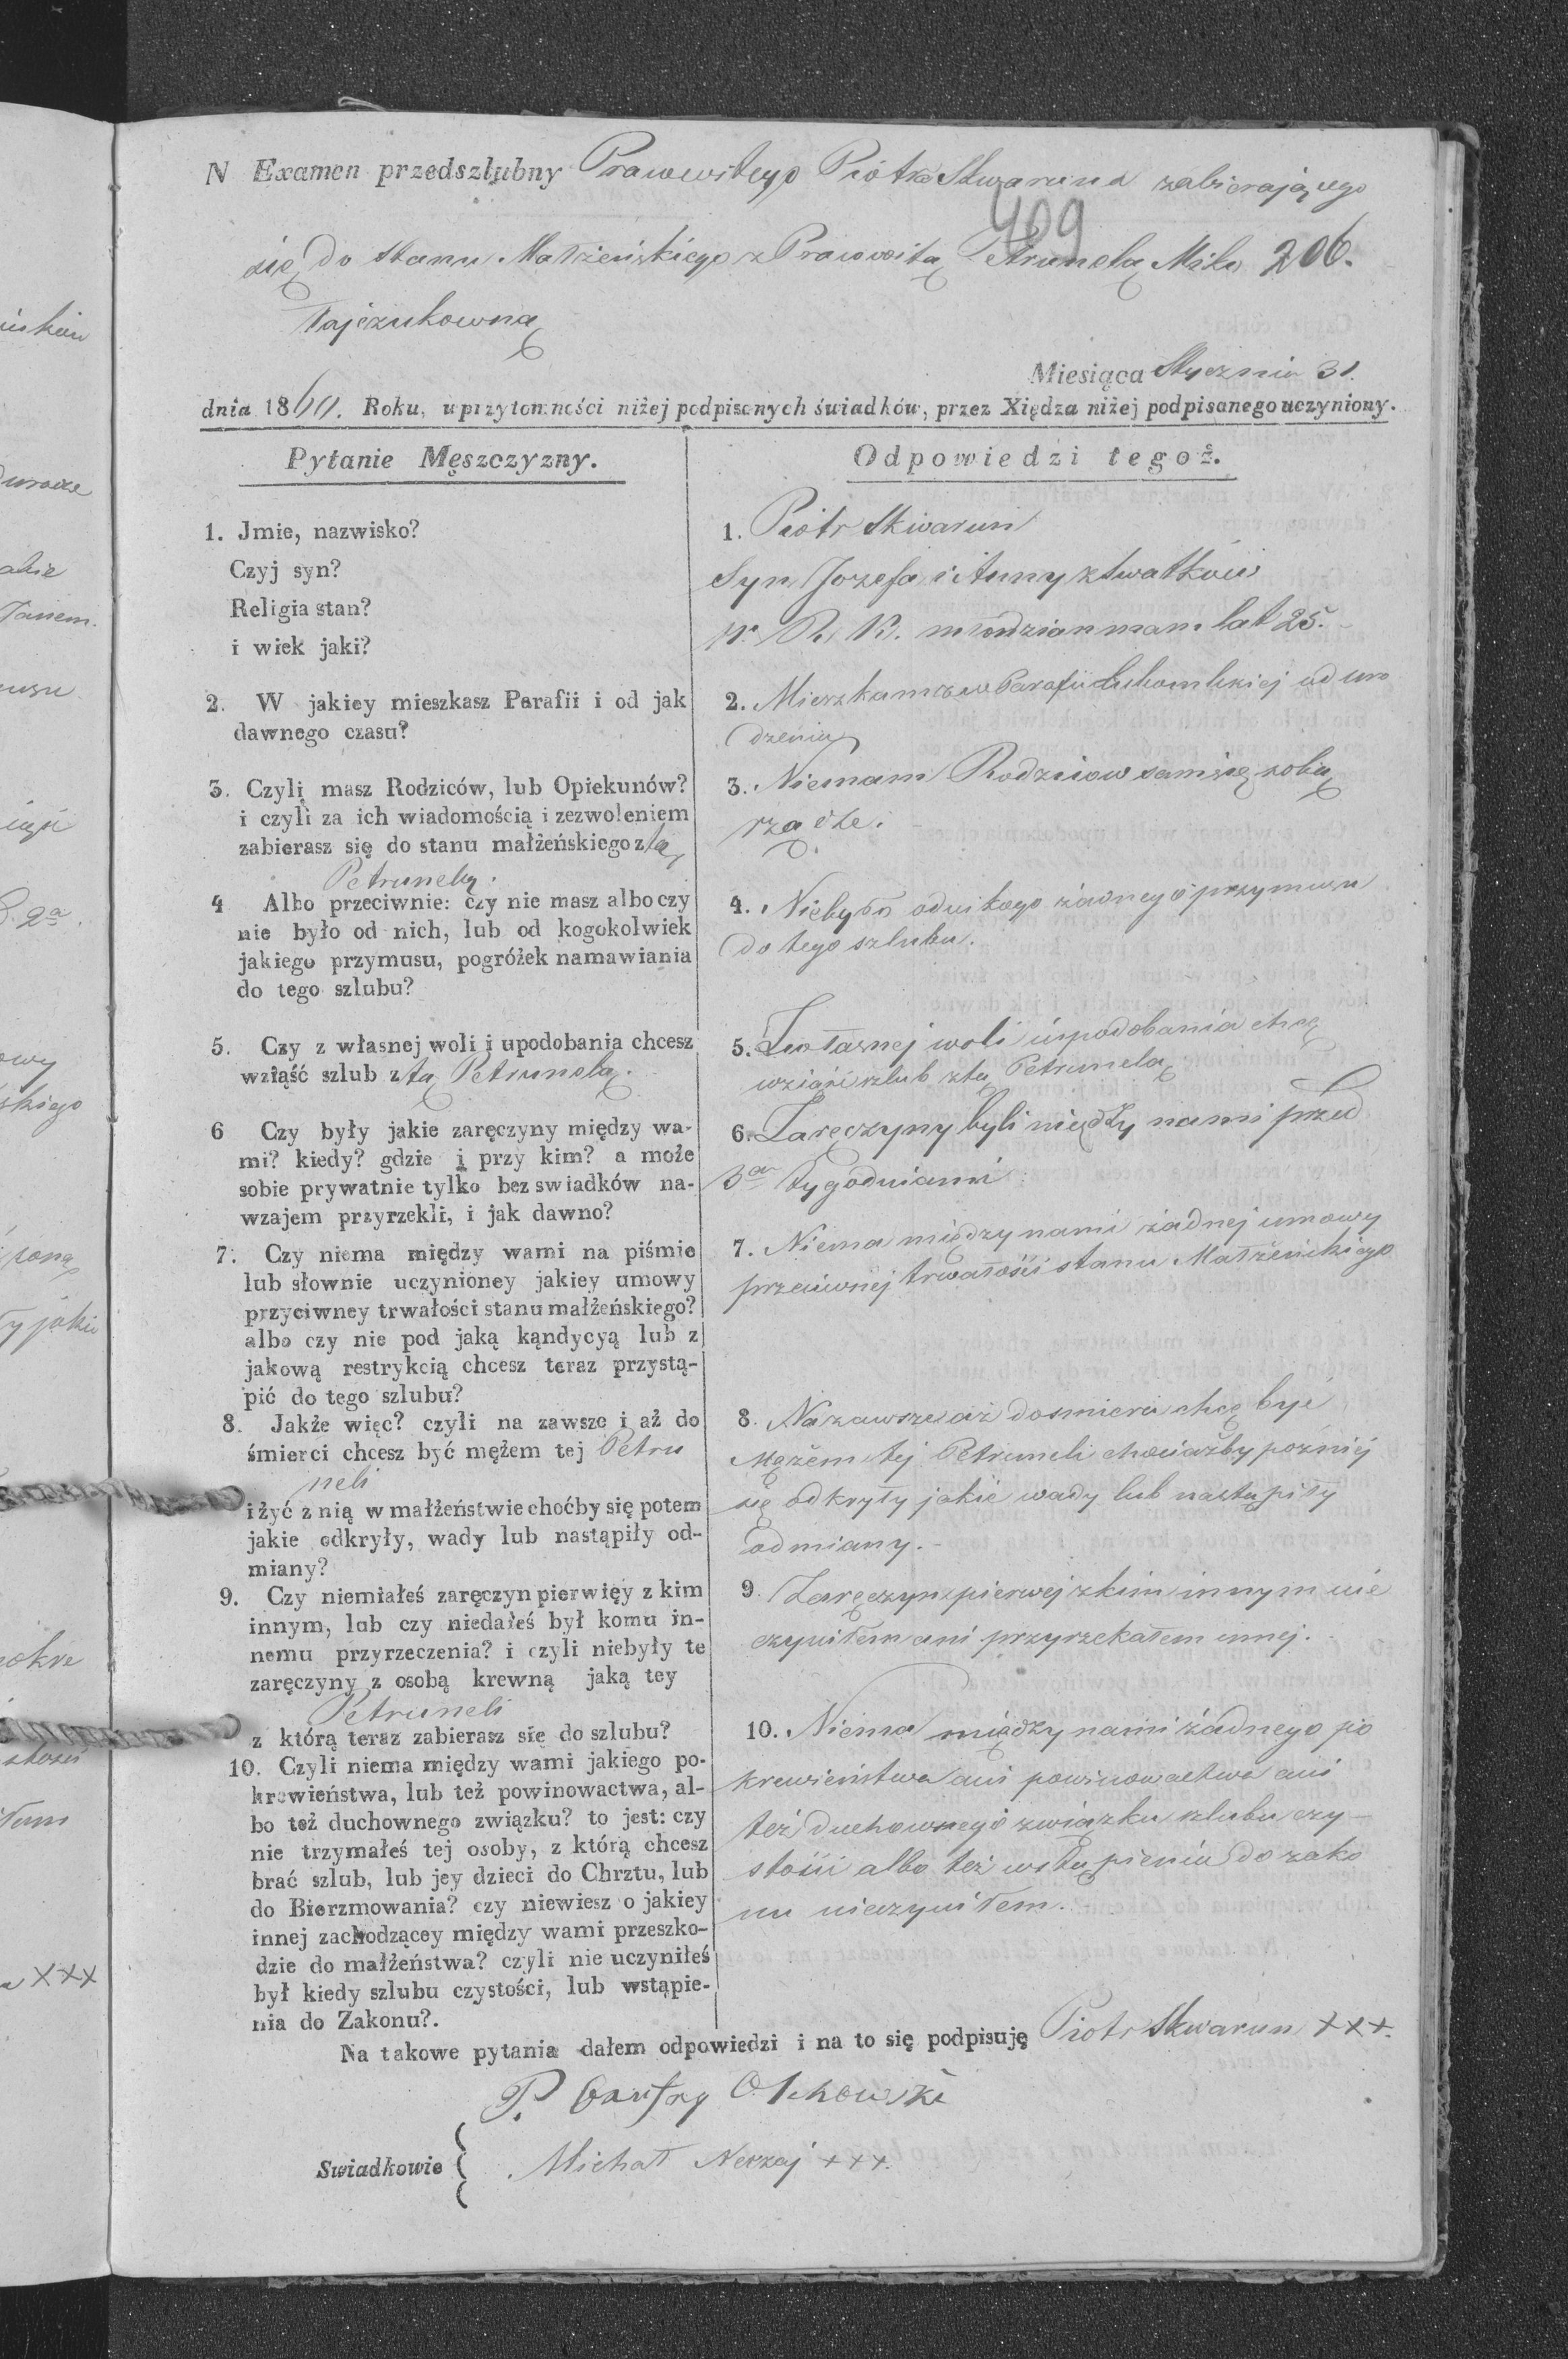 N Examen przedszlubny Prawowitego Piotra Skwaruna zabierającego
409
się do stanu Małżeńskiego z Prawowitą Petrunelą Miko 206.
łajczukowną
Miesiąca Stycznia 31.
dnia 1860. Roku, w przytomności niżej podpisanych świadków, przez Xiędza niżej podpisanego uczyniony.
Pytanie Męszczyzny.
1. Jmie, nazwisko?
Czyj syn?
Religia stan?
i wiek jaki?
2. W jakiey mieszkasz Parafii i od jak
dawnego czasu?
3. Czyli masz Rodziców, lub Opiekunów?
i czyli za ich wiadomością i zezwoleniem
zabierasz się do stanu małżeńskiego z tą
Petrunelą.
4 Albo przeciwnie: czy nie masz albo czy
nie było od nich, lub od kogokolwiek
jakiego przymusu, pogróżek namawiania
do tego szlubu?
5. Czy z własnej woli i upodobania chcesz
wziąść szlub z tą Petrunelą.
6 Czy były jakie zaręczyny między wa-
mi? kiedy? gdzie i przy kim? a może
sobie prywatnie tylko bez swiadków na-
wzajem przyrzekli, i jak dawno?
7. Czy niema między wami na piśmie
lub słownie uczynioney jakiey umowy
przyciwney trwałości stanu małżeńskiego?
albo czy nie pod jaką kąndycyą lub z
jakową restrykcią chcesz teraz przystą-
pić do tego szlubu?
8. Jakże więc? czyli na zawsze i aż do
śmierci chcesz być mężem tej Petru
neli
i żyć z nią w małżeństwie choćby się potem
jakie odkryły, wady lub nastąpiły od-
miany?
9. Czy niemiałeś zaręczyn pierwięy z kim
innym, lub czy niedałeś był komu in-
nemu przyrzeczenia? i czyli niebyły te
zaręczyny z osobą krewną jaką tey
Petruneli
z którą teraz zabierasz się do szlubu?
10. Czyli niema między wami jakiego po-
krewieństwa, lub też powinowactwa, al-
bo też duchownego związku? to jest: czy
nie trzymałeś tej osoby, z którą chcesz
brać szlub, lub jey dzieci do Chrztu, lub
do Bierzmowania? czy niewiesz o jakiey
innej zachodzącey między wami przeszko-
dzie do małżeństwa? czyli nie uczyniłeś
był kiedy szlubu czystości, lub wstąpie-
nia do Zakonu?.
Odpowiedzi tegoż.
1. Piotr Skwarun
Syn Jozefa i Anny z
R. K. młodzian mam lat 25.
2. Mieszkam w Parafii od uro
dzenia
3. Niemam Rodziców sam się sobą
rządzę.
4. Niebyło od nikogo żadnego przymusu
do tego szlubu.
5. Z własnej woli i upodobania chcę
wziąść szlub z tą Petrunelą
6. Zaręczyny byli między nami przed
3a tygodniami
7. Niema między nami żadnej umowy
przeciwnej trwałości stanu Małżeńskiego
8. Na zawsze aż do smierci chcę być
Mężem tej Petruneli chociażby pozniéj
się odkryły jakie wady lub nastąpiły
odmiany.
9. Zaręczyn pierwej z kim innym nie
czyniłem ani przyrzekałem innej.
10. Niema między nami żadnego po
krewieństwa ani powinowactwa ani
też duchownego związku szlubu czy-
stości albo też wstąpienia do zako
nu nieczyniłem.
Na takowe pytania dałem odpowiedzi i na to się podpisuję Piotr Skwarun xxx.
P. Olchowski
Swiadkowie Michał xxx.